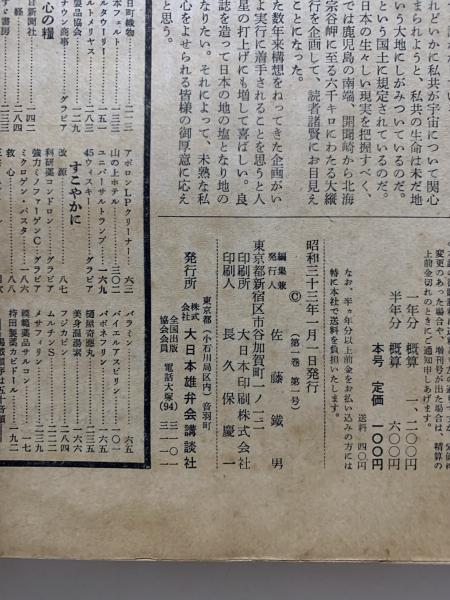 れどいかに私共が宇宙について関心
まされようと、私共の生命は未だ地
いう大地にしがみついているのだ。
という国土に規定されているのだ。
日本の生々しい現実を把握すべく、
では鹿児島の南端、開聞崎から北海
宗谷岬に至る六千キロにわたる大縦
行を企画して、読者諸賢にお目見え
ことになった。
た数年来構想をねってきた企画がい
よ実行に着手されることを思うと人
星の打上げにも増して喜ばしい。良
誌を造って日本の地の塩となり地の
なりたい。それによって、未熟な私
心をよせられる皆様の御厚意に応え
と思う。
変更のあった場合や、増刊号が出た場合は、精算の
上前金切れのときにご通知申しあげます。
一年分 概算 一、二〇〇円
半年分 概算 六〇〇円
本号 定価 一〇〇円
送料 四〇円
なお、半ヵ年分以上前金をお払い込みの方には
特に本社で送料を負担いたします。
昭和三十三年一月一日発行
(第一巻 第一号)
Ⓒ
編集兼
発行人 佐藤鐵男
東京都新宿区市谷加賀町一ノ一二
印刷所 大日本印刷株式会社
印刷人 長久保慶一
東京都(小石川局区内)音羽町
発行所 株式会社 大日本雄弁会講談社
全国出版協会会員 電話大塚(94) 三一〇一 三一一一
日町織物 二一三
本フェルト 二三三
ルタウーリー
ルトメリヤス 二八三
製品協会 二二九
ナウン商事 グラビア
心の糧
日新聞 一四二
二八四
ず書房 二三三
アポロンLPクリーナー 六三
山の上ホテル 三〇二
ユニバーサルトランプ 一六九
45ウィスキー グラビア
すこやかに
改源 八七
科研薬コンドロン グラビア
強力ミノファーゲンC グラビア
ミクロゲン・パスタ 一八六
救心
バラミン 六五
バイエルアスピリン 一〇一
パボネフリン 一六五
樋屋奇應丸 二三五
美身温湯素 二六五
フジカピン 二八四
ムルチンS 二三一
メサフィリン 二三九
模範薬品サルコン 二二七
持田製薬カピドール 一九二